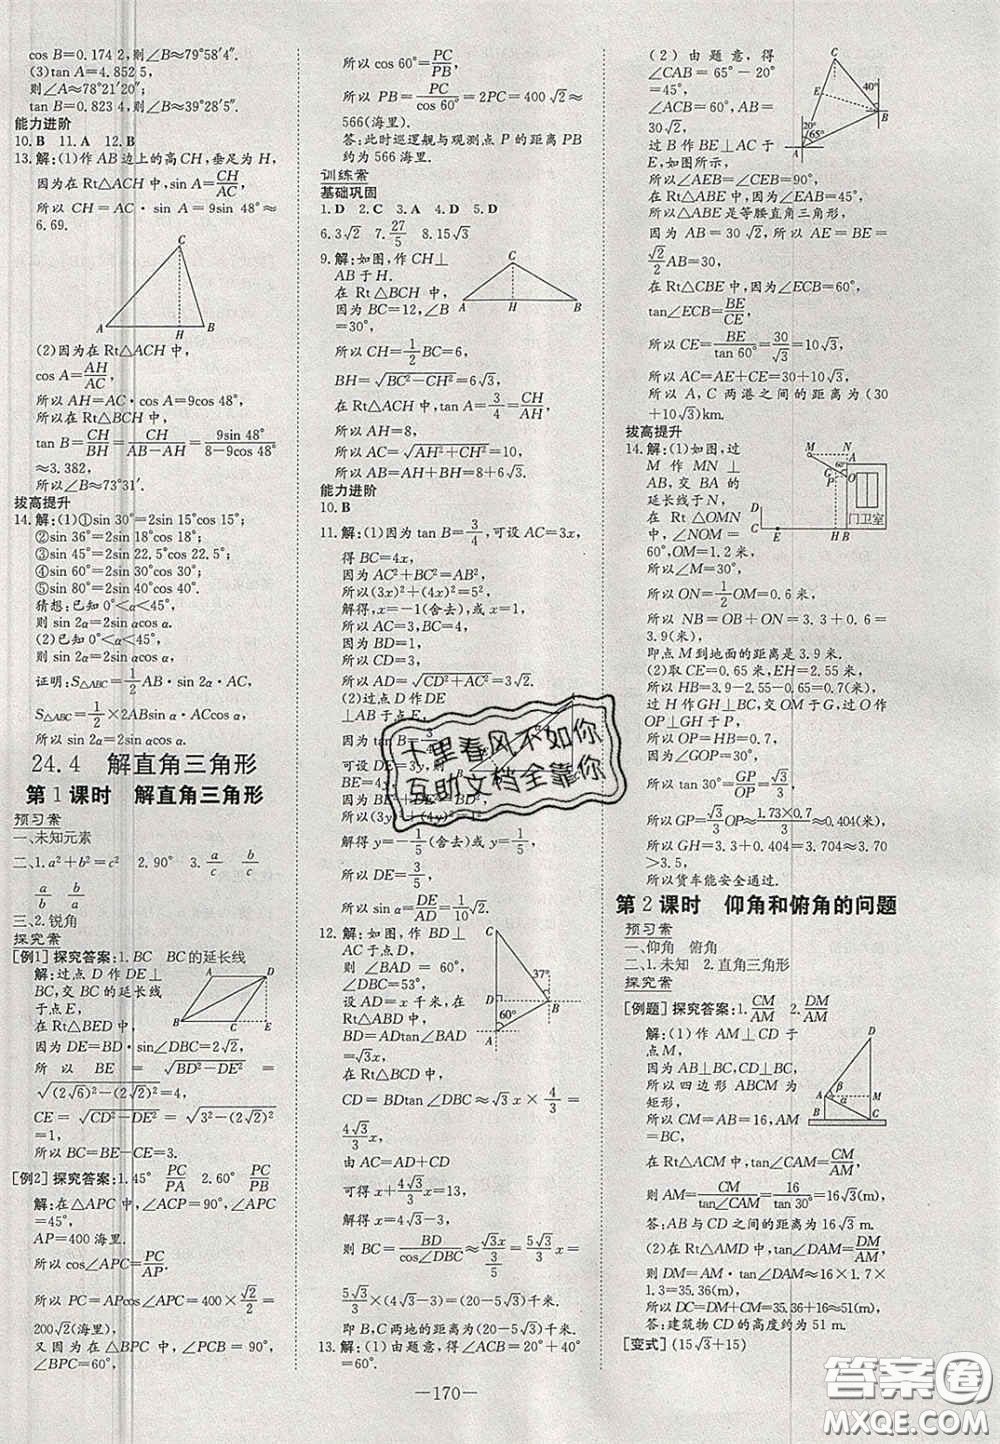 cos B=0.174 2,则∠B≈79°58′4″.
(3)tan A=4.852 5,
则∠A≈78°21′20″.
tan B=0.823 4,则∠B≈39°28′5″.
能力进阶
10.B 11.A 12.B
13.解:(1)作 AB 边上的高CH,垂足为 H,
因为在 Rt△ACH 中,sin A=CH/AC,
所以 CH=AC·sin A=9sin 48°≈
6.69.
C
A H B
(2)因为在 Rt△ACH 中,
cos A=AH/AC,
所以 AH=AC·cos A=9cos 48°,
所以在 Rt△BCH 中,
tan B=CH/BH=CH/(AB-AH)=9sin 48°/(8-9cos 48°)
≈3.382,
所以∠B≈73°31′.
拔高提升
14.解:(1)①sin 30°=2sin 15°cos 15°;
②sin 36°=2sin 18°cos 18°;
③sin 45°=2sin 22.5°cos 22.5°;
④sin 60°=2sin 30°cos 30°;
⑤sin 80°=2sin 40°cos 40°.
猜想:已知 0°<α<45°,
则 sin 2α=2sin αcos α.
(2)已知 0°<α<45°,
则 sin 2α=2sin αcos α.
证明:S△ABC=1/2 AB·sin 2α·AC,
S△ABC=1/2×2ABsin α·ACcos α,
所以 sin 2α=2sin αcos α.
24.4 解直角三角形
第 1 课时 解直角三角形
预习案
一、未知元素
二、1.a²+b²=c² 2.90° 3.a/c b/c
a/b b/a
三、2.锐角
探究案
[例1] 探究答案:1.BC BC 的延长线
解:过点 D 作 DE⊥
BC,交 BC 的延长线
于点 E,
A D
B C E
在 Rt△BED 中,
因为 DE=BD·sin∠DBC=2√2,
所以 BE=√(BD²-DE²)=
√((2√6)²-(2√2)²)=4,
CE=√(CD²-DE²)=√(3²-(2√2)²)=1,
所以 BC=BE-CE=3.
[例2] 探究答案:1.45° PC/PA 2.60° PC/PB
解:在△APC 中,∠ACP=90°,∠APC
=45°,
AP=400 海里.
所以 cos∠APC=PC/AP,
所以 PC=AP·cos∠APC=400×√2/2=
200√2(海里).
又因为在△BPC 中,∠BCP=90°,
∠BPC=60°,
所以 cos 60°=PC/PB,
所以 PB=PC/cos 60°=2PC=400√2≈
566(海里).
答:此时巡逻舰与观测点 P 的距离 PB
约为 566 海里.
训练案
基础巩固
1.D 2.C 3.A 4.D 5.D
6.3√2 7.27/5 8.15√3
9.解:如图,作 CH⊥
AB 于 H.
在 Rt△BCH 中,
因为 BC=12,∠B
=30°,
C
A H B
所以 CH=1/2 BC=6,
BH=√(BC²-CH²)=6√3,
在 Rt△ACH 中,tan A=3/4=CH/AH,
所以 AH=8,
所以 AC=√(AH²+CH²)=10,
所以 AB=AH+BH=8+6√3.
能力进阶
10.B
11.解:(1)因为 tan B=3/4,可设 AC=3x,
得 BC=4x,
因为 AC²+BC²=AB²,
所以(3x)²+(4x)²=5²,
解得,x=-1(舍去),或 x=1,
所以 AC=3,BC=4,
因为 BD=1,
所以 CD=3,
所以 AD=√(CD²+AC²)=3√2.
(2)过点 D 作 DE
⊥AB 于点 E,
十里春风不如你
互助文档全靠你
解得 y=-1/5(舍去)或 y=1/5,
所以 DE=3/5,
所以 sin α=DE/AD=√2/10.
12.解:如图,作 BD⊥
AC于点 D.
则∠BAD=60°,
∠DBC=53°,
设 AD=x 千米,在
Rt△ABD 中,
BD=ADtan∠BAD
=√3x.
C
37°
D B
60°
A
在 Rt△BCD 中,
CD=BDtan∠DBC≈√3x×4/3=
4√3/3 x,
由 AC=AD+CD
可得 x+4√3/3 x=13,
解得 x=4√3-3,
则 BC=BD/cos∠DBC≈√3x/(3/5)=5√3/3 x=
5√3/3×(4√3-3)=20-5√3(千米),
即 B,C 两地的距离约为(20-5√3)千米.
13.解:(1)由题意,得∠ACB=20°+40°
=60°;
(2)由题意,得
∠CAB=65°-20°
=45°,
∠ACB=60°,AB=
30√2,
过 B 作 BE⊥AC 于
E,如图所示,
C
E
40°
B
20°
65°
A
所以∠AEB=∠CEB=90°,
在 Rt△ABE 中,因为∠EAB=45°,
所以△ABE 是等腰直角三角形,
因为 AB=30√2,所以 AE=BE=
√2/2 AB=30,
在 Rt△CBE 中,因为∠ECB=60°,
tan∠ECB=BE/CE,
所以 CE=BE/tan 60°=30/√3=10√3,
所以 AC=AE+CE=30+10√3,
所以 A,C 两港之间的距离为(30
+10√3)km.
拔高提升
14.解:(1)如图,过
M 作 MN⊥
AB,交 BA 的
延长线于 N,
在 Rt△OMN
中,∠NOM=
60°,OM=1.2 米,
M N
G 60° A
P O
门卫室
D
C E H B
所以∠M=30°,
所以 ON=1/2 OM=0.6 米,
所以 NB=ON+OB=3.3+0.6=
3.9(米),
即点 M 到地面的距离是 3.9 米.
(2)取 CE=0.65 米,EH=2.55 米,
所以 HB=3.9-2.55-0.65=0.7(米),
过 H 作 GH⊥BC,交 OM 于 G,过 O 作
OP⊥GH 于 P,
∠GOP=30°,
所以 tan 30°=GP/OP=√3/3,
所以 GP=√3/3 OP≈1.73×0.7/3≈0.404(米),
所以 GH=3.3+0.404=3.704≈3.70
>3.5,
所以货车能安全通过.
第 2 课时 仰角和俯角的问题
预习案
一、仰角 俯角
二、1.未知 2.直角三角形
探究案
[例题] 探究答案:1.CM/AM 2.DM/AM
解:(1)作 AM⊥CD 于
点 M,
因为 AB⊥BC,CD⊥BC,
所以四边形 ABCM
为矩形,
所以 CM=AB=16,AM=BC,
D
A β M
α
B C
在 Rt△ACM 中,tan∠CAM=
CM/AM,
则 AM=CM/tan∠CAM=16/tan 30°=16√3(m).
答:AB与 CD 之间的距离为 16√3 m.
(2)在 Rt△AMD 中,tan∠DAM=DM/AM,
则 DM=AM·tan∠DAM≈16×1.7×
1.3=35.36(m),
所以 DC=DM+CM=35.36+16≈51(m).
答:建筑物 CD 的高度约为 51 m.
[变式] (15√3+15)
—170—
答案圈
MXQE.COM